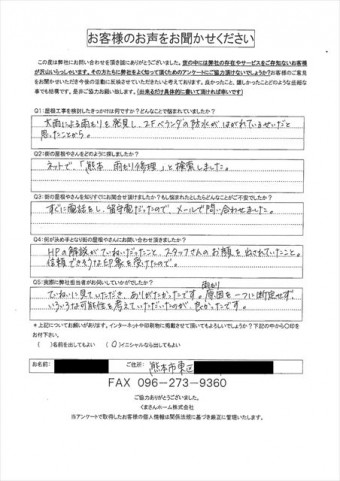 お客様のお声をお聞かせください
この度は弊社にお問い合わせを頂き誠にありがとうございました。世の中には弊社の存在やサービスをご存知ないお客様
が沢山いらっしゃいます。その方たちに弊社をよく知って頂くためのアンケートにご協力頂けないでしょうか?お客様のご意見
をお聞かせいただき今後の活動に反映させていただきたいと考えております。良かったこと、嬉しかったことどのような些細な
事でも結構です。是非ご協力お願い致します。「出来るだけ具体的に書いて頂ければ幸いです」
Q1:屋根工事を検討したきっかけは何ですか?どんなことで悩まれていましたか?
大雨による雨もりを発見し、2Fベランダの防水がはがれているせいだと
思ったことから。
Q2:街の屋根やさんをどのように探しましたか?
ネットで、「熊本 雨もり修理」と検索しました。
Q3:街の屋根やさんを知りすぐにお問合せ頂けましたか?もし悩まれたとしたらどんなことがご不安でしたか?
すぐに電話をし、留守電だったので、メールで問い合わせました。
Q4:何が決め手となり街の屋根やさんにお問い合わせ頂きましたか?
HPの解説がていねいだったこと、スタッフさんのお顔を出されていたこと。
信頼できそうな印象を受けたので。
Q5:実際に弊社担当者がお伺いしていかがでしたか?
ていねいに見ていただき、ありがたかったです。雨もり原因を一つに断定せず、
いろいろな可能性を考えていただいたのが、良かったです。
*上記についてお願いがあります。インターネットや印刷物に掲載させて頂いてもよろしいでしょうか?下記の中から〇印を
お付け下さい。
( )名前を出してもよい (〇)イニシャルなら出してもよい
お名前: ご住所: 熊本市東区
FAX 096-273-9360
ご協力ありがとうございました。
くまさんホーム株式会社
※当アンケートで取得したお客様の個人情報は関係法規に基づき厳正に管理いたします。